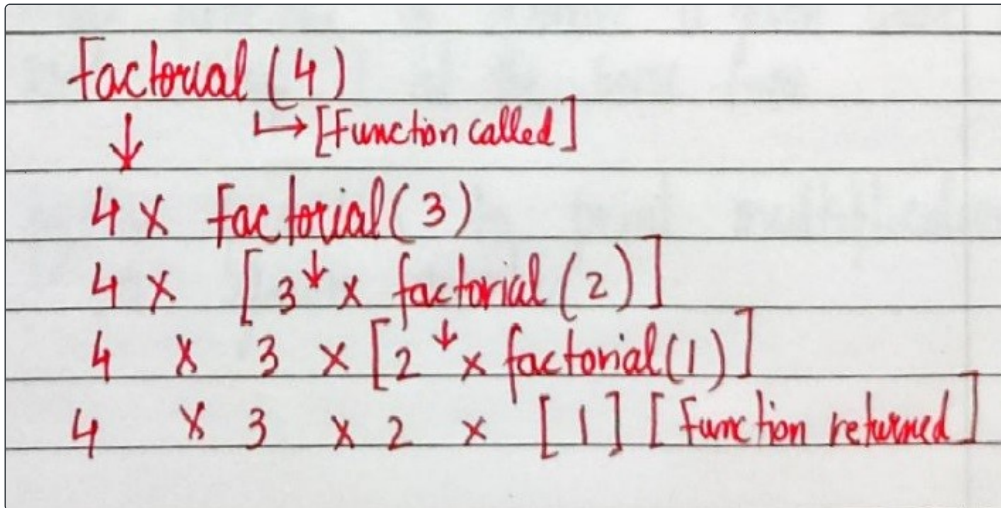 factorial (4)
↓ ↳ [Function called]
4 × factorial(3)
4 × [3 ↓ × factorial (2)]
4 × 3 × [2 ↓ × factorial(1)]
4 × 3 × 2 × [1] [Function returned]